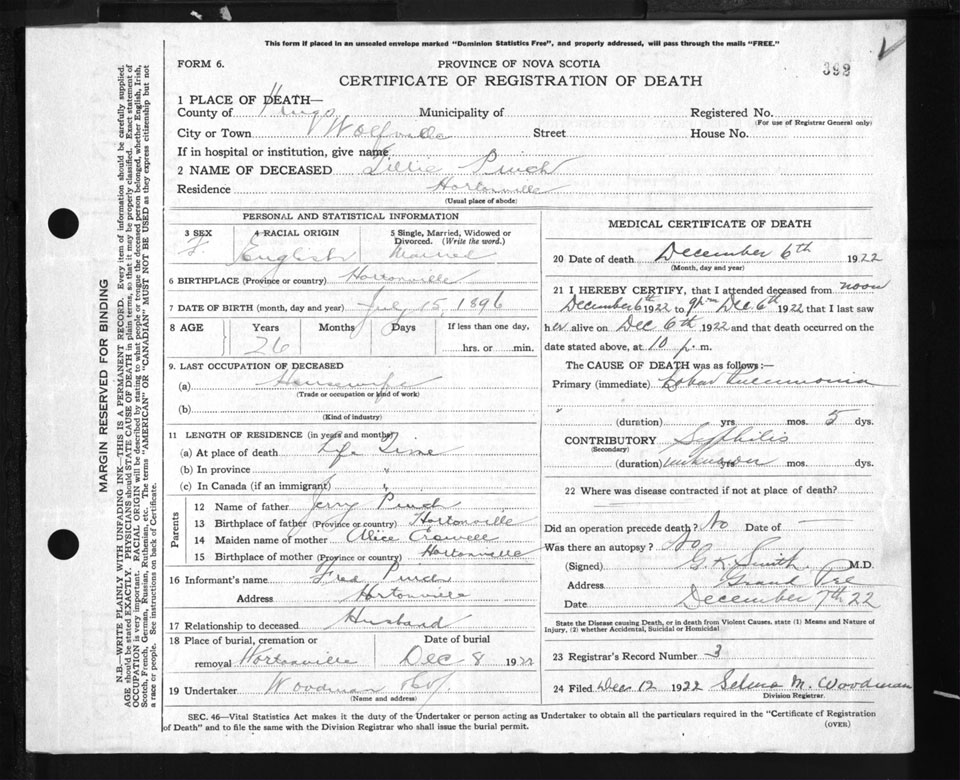 This form if placed in an unsealed envelope marked "Dominion Statistics Free", and properly addressed, will pass through the mails "FREE."
FORM 6.
PROVINCE OF NOVA SCOTIA
392
CERTIFICATE OF REGISTRATION OF DEATH
1 PLACE OF DEATH—
County of Kings Municipality of Registered No.
(For use of Registrar General only)
City or Town Wolfville Street House No.
If in hospital or institution, give name
2 NAME OF DECEASED Tillie Pinch
Residence Hortonville
(Usual place of abode)
PERSONAL AND STATISTICAL INFORMATION
3 SEX 4 RACIAL ORIGIN 5 Single, Married, Widowed or Divorced. (Write the word.)
F. English Married
6 BIRTHPLACE (Province or country) Hortonville
7 DATE OF BIRTH (month, day and year) July 15, 1896
8 AGE Years Months Days If less than one day,
26 hrs. or min.
9. LAST OCCUPATION OF DECEASED
(a) Housewife
(Trade or occupation or kind of work)
(b)
(Kind of industry)
11 LENGTH OF RESIDENCE (in years and months)
(a) At place of death Life Time
(b) In province "
(c) In Canada (if an immigrant) "
Parents
12 Name of father Jerry Pinch
13 Birthplace of father (Province or country) Hortonville
14 Maiden name of mother Alice Crowell
15 Birthplace of mother (Province or country) Hortonville
16 Informant's name Fred Pinch
Address Hortonville
17 Relationship to deceased Husband
18 Place of burial, cremation or Date of burial
removal Hortonville Dec 8 1922
19 Undertaker Woodman
(Name and address)
MEDICAL CERTIFICATE OF DEATH
20 Date of death December 6th 1922
(Month, day and year)
21 I HEREBY CERTIFY, that I attended deceased from noon
December 6th 1922 to 9 pm Dec 6th 1922 that I last saw
her alive on Dec 6th 1922 and that death occurred on the
date stated above, at 10 p. m.
The CAUSE OF DEATH was as follows:—
Primary (immediate) Lobar Pneumonia
"
(duration) yrs. mos. 5 dys.
CONTRIBUTORY Syphilis
(Secondary)
(duration) unknown yrs. mos. dys.
22 Where was disease contracted if not at place of death?
Did an operation precede death? No Date of —
Was there an autopsy? No
(Signed) G.K. Smith, M.D.
Address Grand Pre
Date December 7th 22
State the Disease causing Death, or in death from Violent Causes, state (1) Means and Nature of
Injury, (2) whether Accidental, Suicidal or Homicidal
23 Registrar's Record Number 3
24 Filed Dec 12 1922 Selena M. Woodman
Division Registrar.
SEC. 46—Vital Statistics Act makes it the duty of the Undertaker or person acting as Undertaker to obtain all the particulars required in the "Certificate of Registration
of Death" and to file the same with the Division Registrar who shall issue the burial permit.
(OVER)
MARGIN RESERVED FOR BINDING
N.B.—WRITE PLAINLY WITH UNFADING INK—THIS IS A PERMANENT RECORD. Every item of information should be carefully supplied.
AGE should be stated EXACTLY. PHYSICIANS should STATE CAUSE OF DEATH in plain terms, so that it may be properly classified. Exact statement of
OCCUPATION is very important. RACIAL ORIGIN will be described by stating to what people or tongue the deceased person belonged, whether English, Irish,
Scotch, French, German, Russian, Ruthenian, etc. The terms "AMERICAN" OR "CANADIAN" MUST NOT BE USED as they express citizenship but not
a race or people. See instructions on back of Certificate.